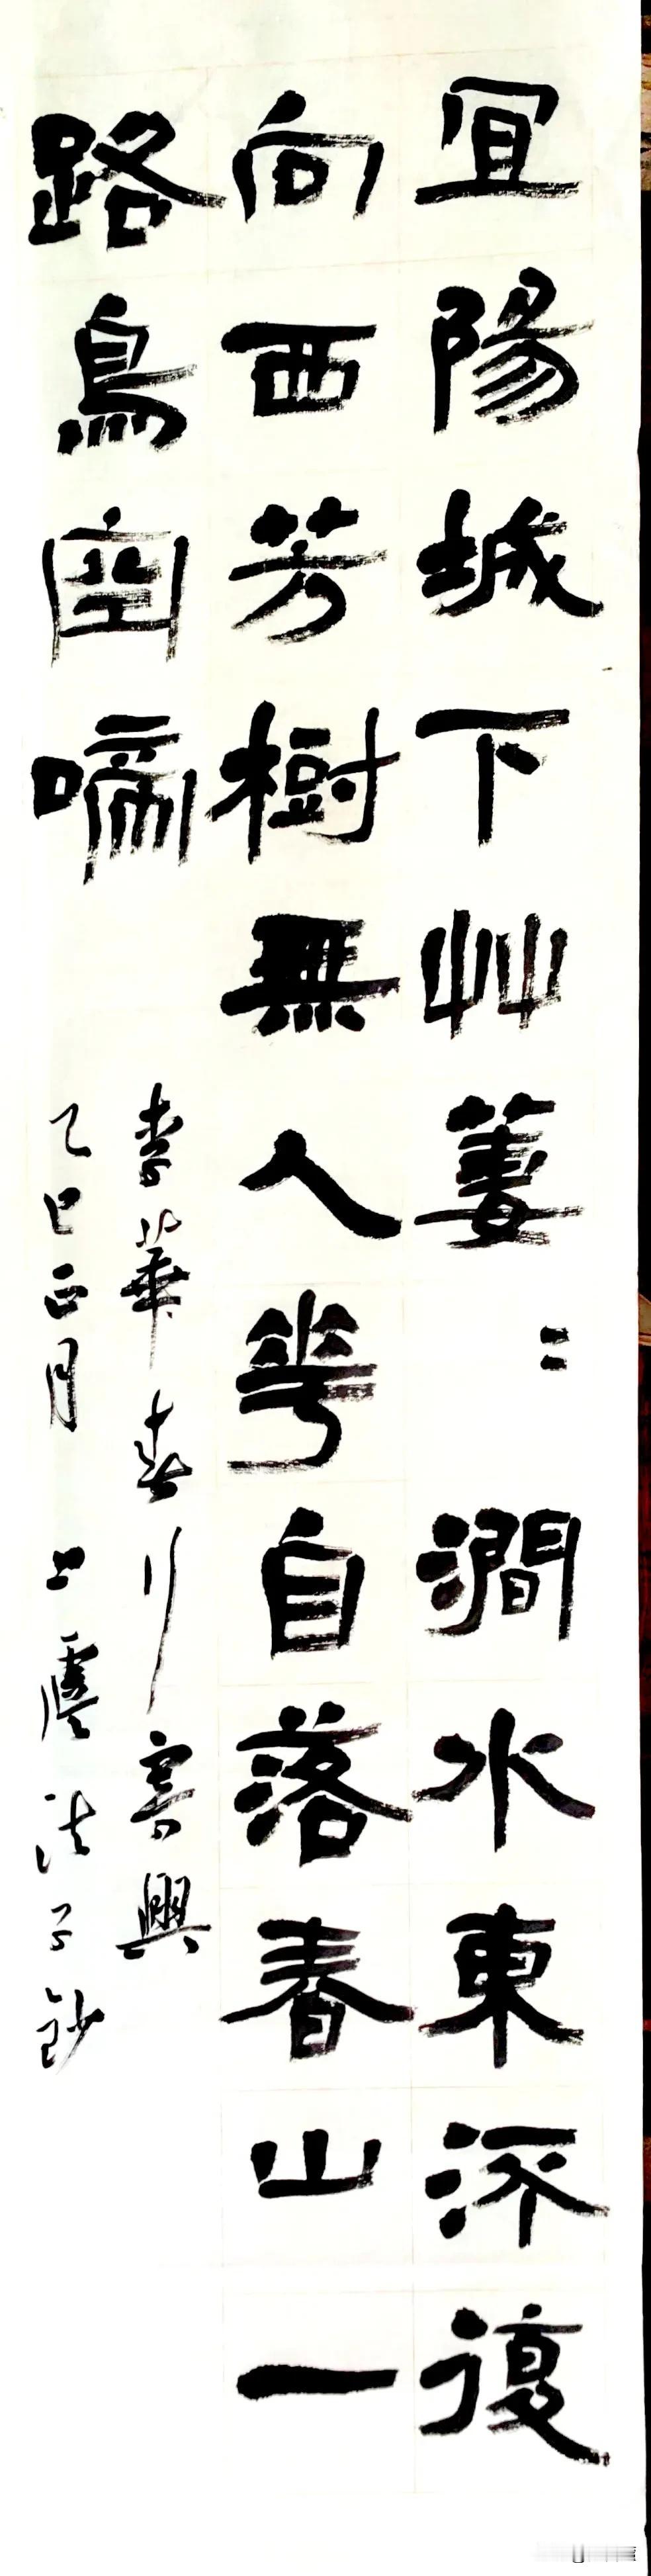 宜陽城下艸萋〻澗水東流復
向西芳樹無人花自落春山一
路鳥空啼
李華春行寄興
乙巳正月上虞法子鈔